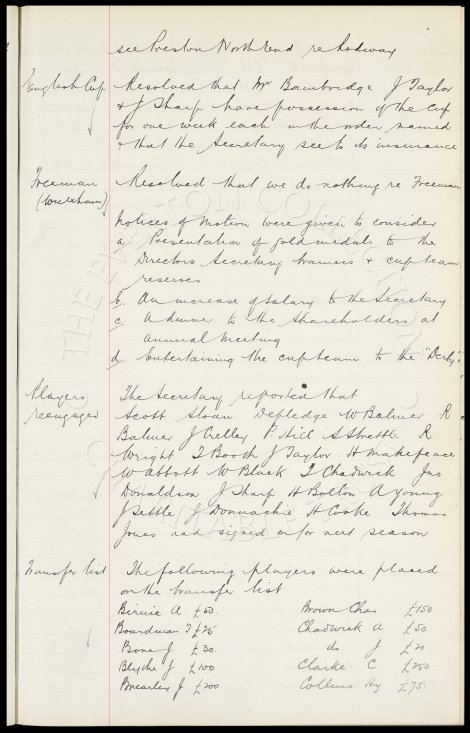 see Preston North End re Rodway
English Cup Resolved that Mr Bainbridge J Taylor
& J Sharp have possession of the Cup
for one week each in the order named
& that the Secretary see to its insurance
Freeman Resolved that we do nothing re Freeman
Notices of Motion were given to consider
a. Presentation of gold medals to the
Directors Secretary trainers & cup team
reserves
b. An increase of salary to the Secretary
c. A dinner to the shareholders at
annual meeting
d. Entertaining the cup team to the "Derby"
Players The Secretary reported that
reengaged Scott Sloan Depledge W Balmer R
Balmer J Crelley P Hill S Strettle R
Wright T Booth J Taylor H Makepeace
W Abbott W Black T Chadwick Jno
Donaldson J Sharp H Bolton A Young
J Settle J Donnachie H Cooke Thomas
Jones had signed on for next season
Transfer list The following players were placed
on the transfer list
Birnie A £50. Brown Chas £150
Boardman T £25 Chadwick A £50
Bone J £30. do J £20
Blythe J £100 Clarke C £250
Brearley J £200 Collins Hy £75.
THE EVERTON COLLECTION